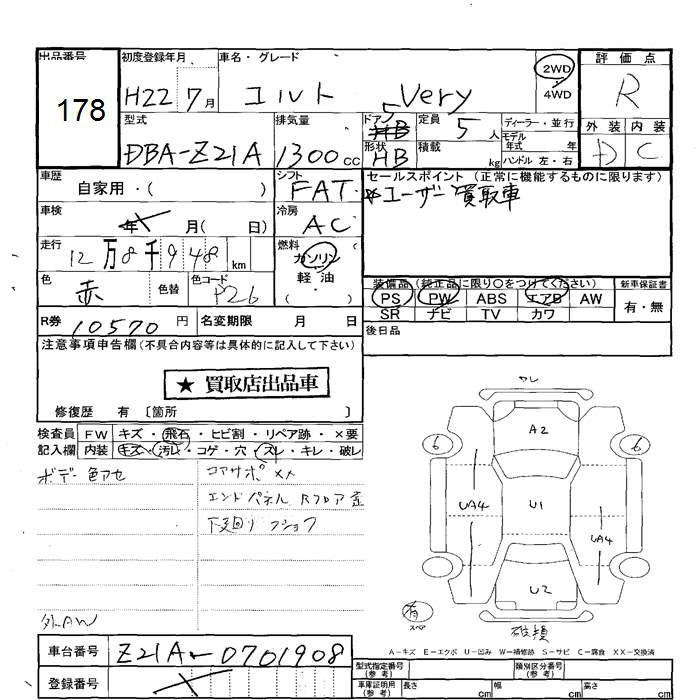 出品番号 初度登録年月 車名・グレード 評価点
178 H22 7月 コルト Very 2WD 4WD R
型式 排気量 ドア 5 定員 ディーラー・並行 外装 内装
DBA-Z21A 1300cc 形状 HB 5人 積載 kg モデル年式 年 ハンドル 左・右 D C
車歴 自家用・( ) シフト FAT セールスポイント (正常に機能するものに限ります)
*ユーザー買取車
車検 年 月( 日) 冷房 AC
走行 12万8千948km 燃料 ガソリン 軽油・
色 赤 色替 色コード P26 装備品 (純正品に限り○をつけてください) 新車保証書
PS PW ABS エアB AW 有・無
SR ナビ TV カワ
R券 10570円 名変期限 月 日 後日品
注意事項申告欄(不具合内容等は具体的に記入して下さい)
★ 買取店出品車
修復歴 有 〔箇所 〕
検査員 FW キズ・飛石・ヒビ割・リペア跡・×要
記入欄 内装 キズ・汚レ・コゲ・穴・スレ・キレ・破レ
ボデー色アセ コアサポ XX
エンドパネル Rフロア歪
下廻り
外AW
ヤレ
A2
6 6
UA4 U1 UA4
U2
有 スペア 破損
A-キズ E-エクボ U-凹み W-補修跡 S-サビ C-腐食 XX-交換済
車台番号 Z21A-0701908 型式指定番号(参考) 類別区分番号(参考)
登録番号 車庫証明用(参考) 長さ cm 幅 cm 高さ cm